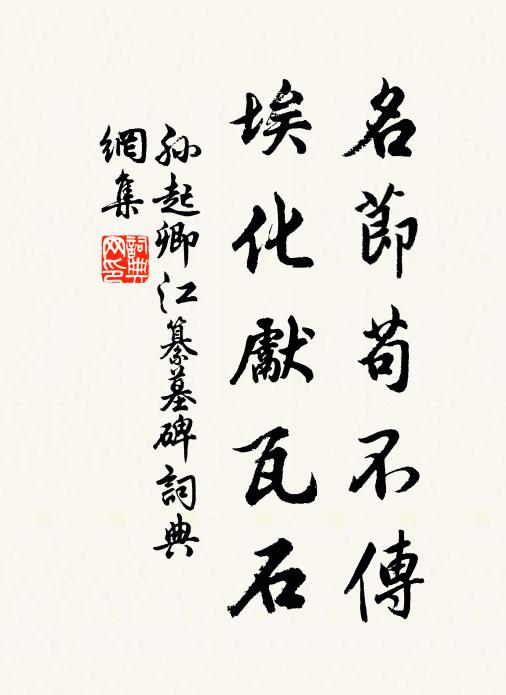 名節苟不傳
埃化獻瓦石
孫起卿江纂墓碑詞典
網集
詞典網印